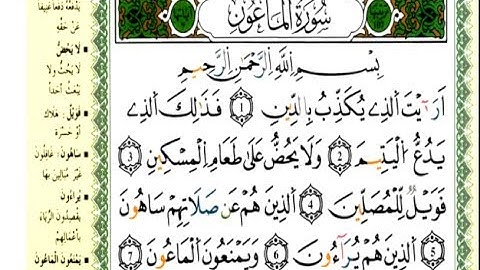 سُورَةُ الْمَاعُونِ
بِسْمِ اللَّهِ الرَّحْمَٰنِ الرَّحِيمِ
اَرَآيْتَ الَّذِي يُكَذِّبُ بِالدِّينِ 1 فَذَٰلِكَ الَّذِي
يَدُعُّ الْيَتِيمَ 2 وَلَا يَحُضُّ عَلَىٰ طَعَامِ الْمِسْكِينِ 3
فَوَيْلٌ لِّلْمُصَلِّينَ 4 الَّذِينَ هُمْ عَن صَلَاتِهِمْ سَاهُونَ
5 الَّذِينَ هُمْ يُرَآءُونَ 6 وَيَمْنَعُونَ الْمَاعُونَ 7
يَدْفَعُهُ دَفْعاً عَنِيفاً
عَنْ حَقِّهِ
لَا يَحُضُّ
لَا يَحُثُّ ولا
يَبْعَثُ أَحَداً
فَوَيْلٌ: هَلَاك
أو حَسْرَة
سَاهُونَ: غَافِلُونَ
غَيْرَ مُبَالِينَ بِهَا
يُرَاءُونَ:
يَقْصِدُونَ الرِّيَاءَ
بِأَعْمَالِهِمْ
يَمْنَعُونَ الْمَاعُونَ